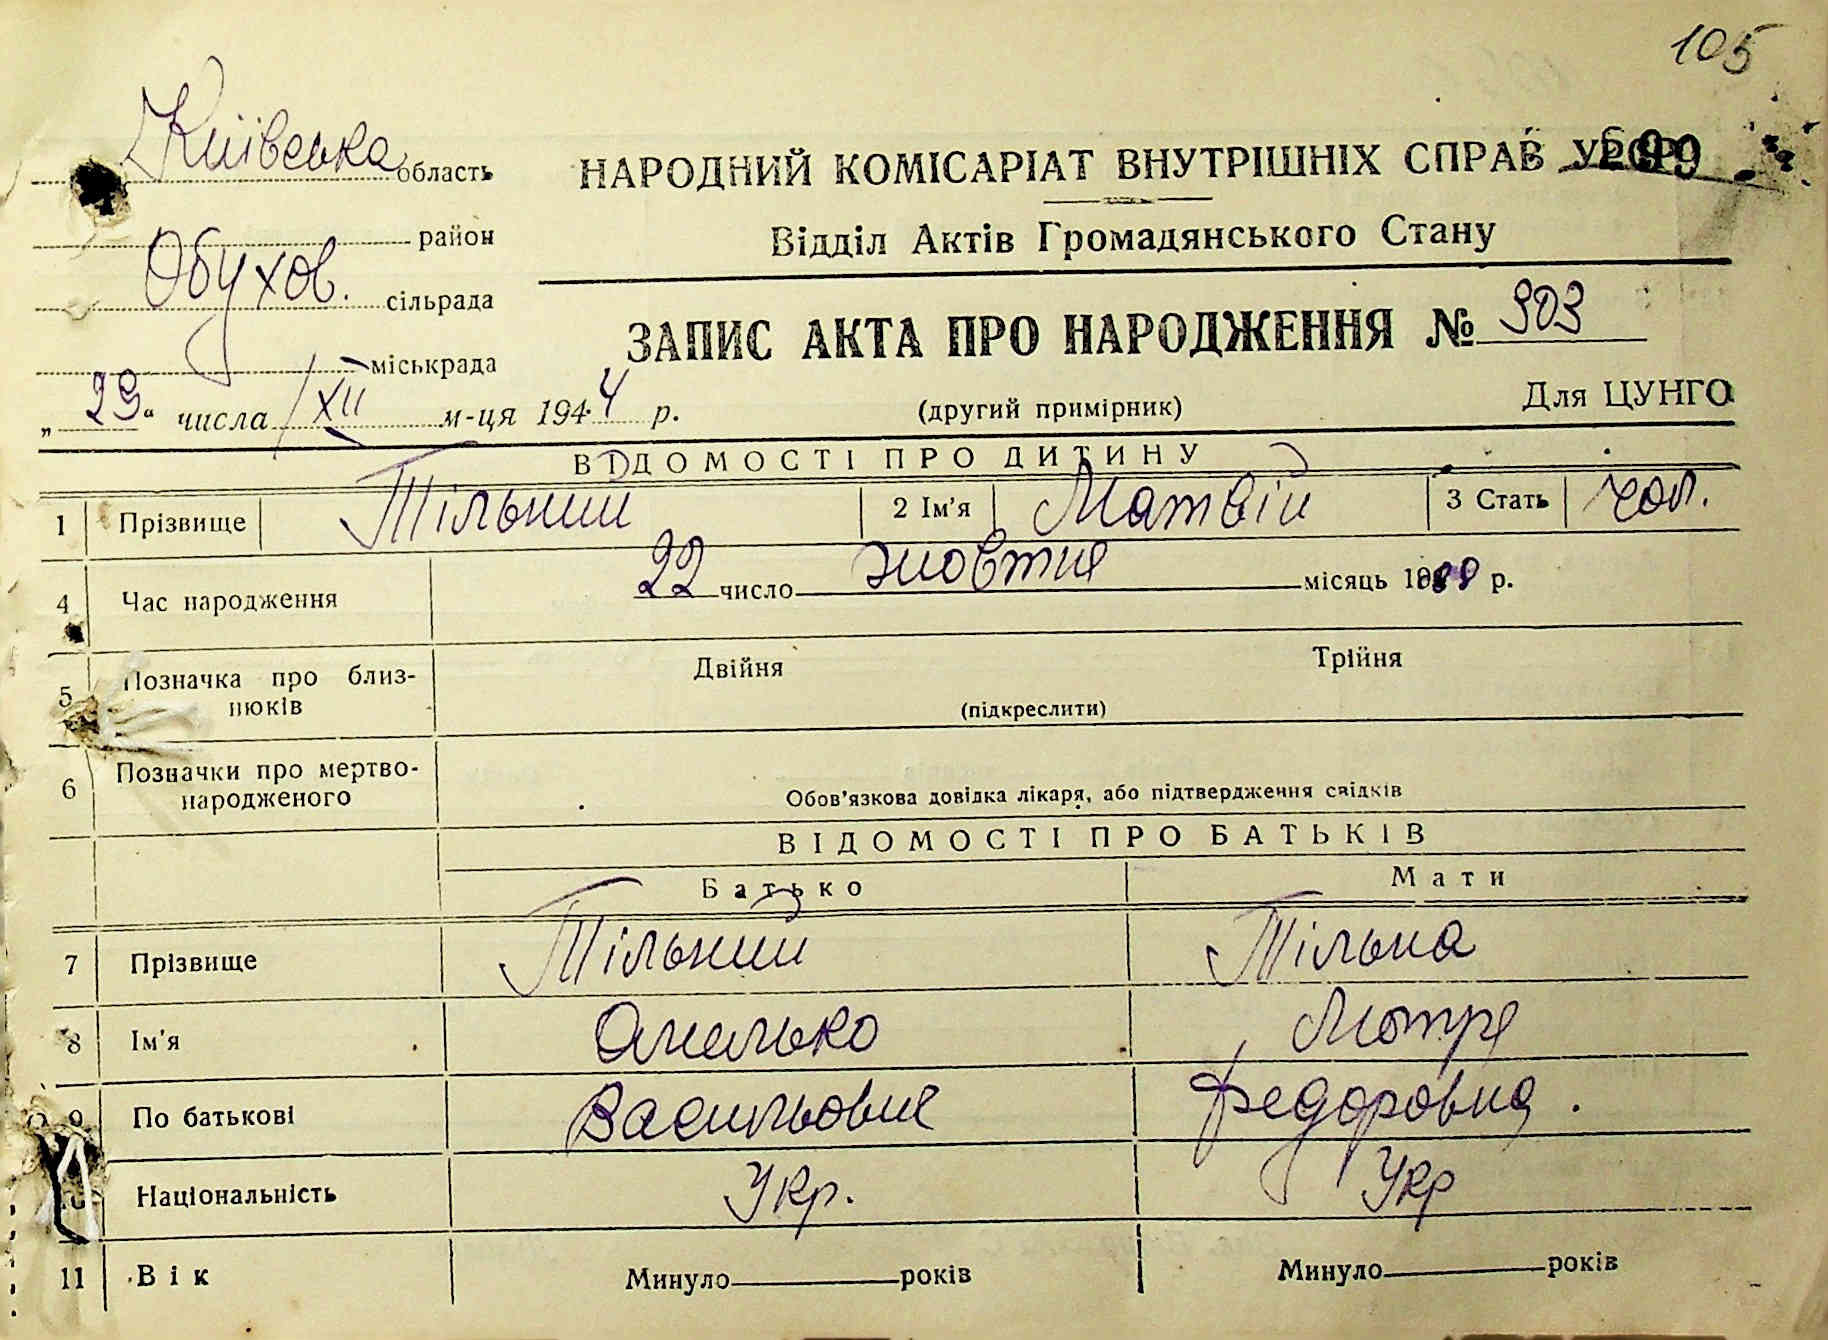 105
Київська область
НАРОДНИЙ КОМІСАРІАТ ВНУТРІШНІХ СПРАВ УРСР
299
Відділ Актів Громадянського Стану
район
Обухов. сільрада
міськрада
ЗАПИС АКТА ПРО НАРОДЖЕННЯ № 903
„ 29 “ числа XII м-ця 1944 р.
(другий примірник)
Для ЦУНГО
ВІДОМОСТІ ПРО ДИТИНУ
1 Прізвище Тільний 2 Ім'я Матвій 3 Стать чол.
4 Час народження 22 число жовтня місяць р.
5 Позначка про близнюків Двійня Трійня
(підкреслити)
6 Позначки про мертво-
народженого
Обов'язкова довідка лікаря, або підтвердження свідків
ВІДОМОСТІ ПРО БАТЬКІВ
Батько Мати
7 Прізвище Тільний Тільна
8 Ім'я Омелько Мотря
9 По батькові Васильович Федоровна.
10 Національність Укр. Укр
11 Вік Минуло років Минуло років